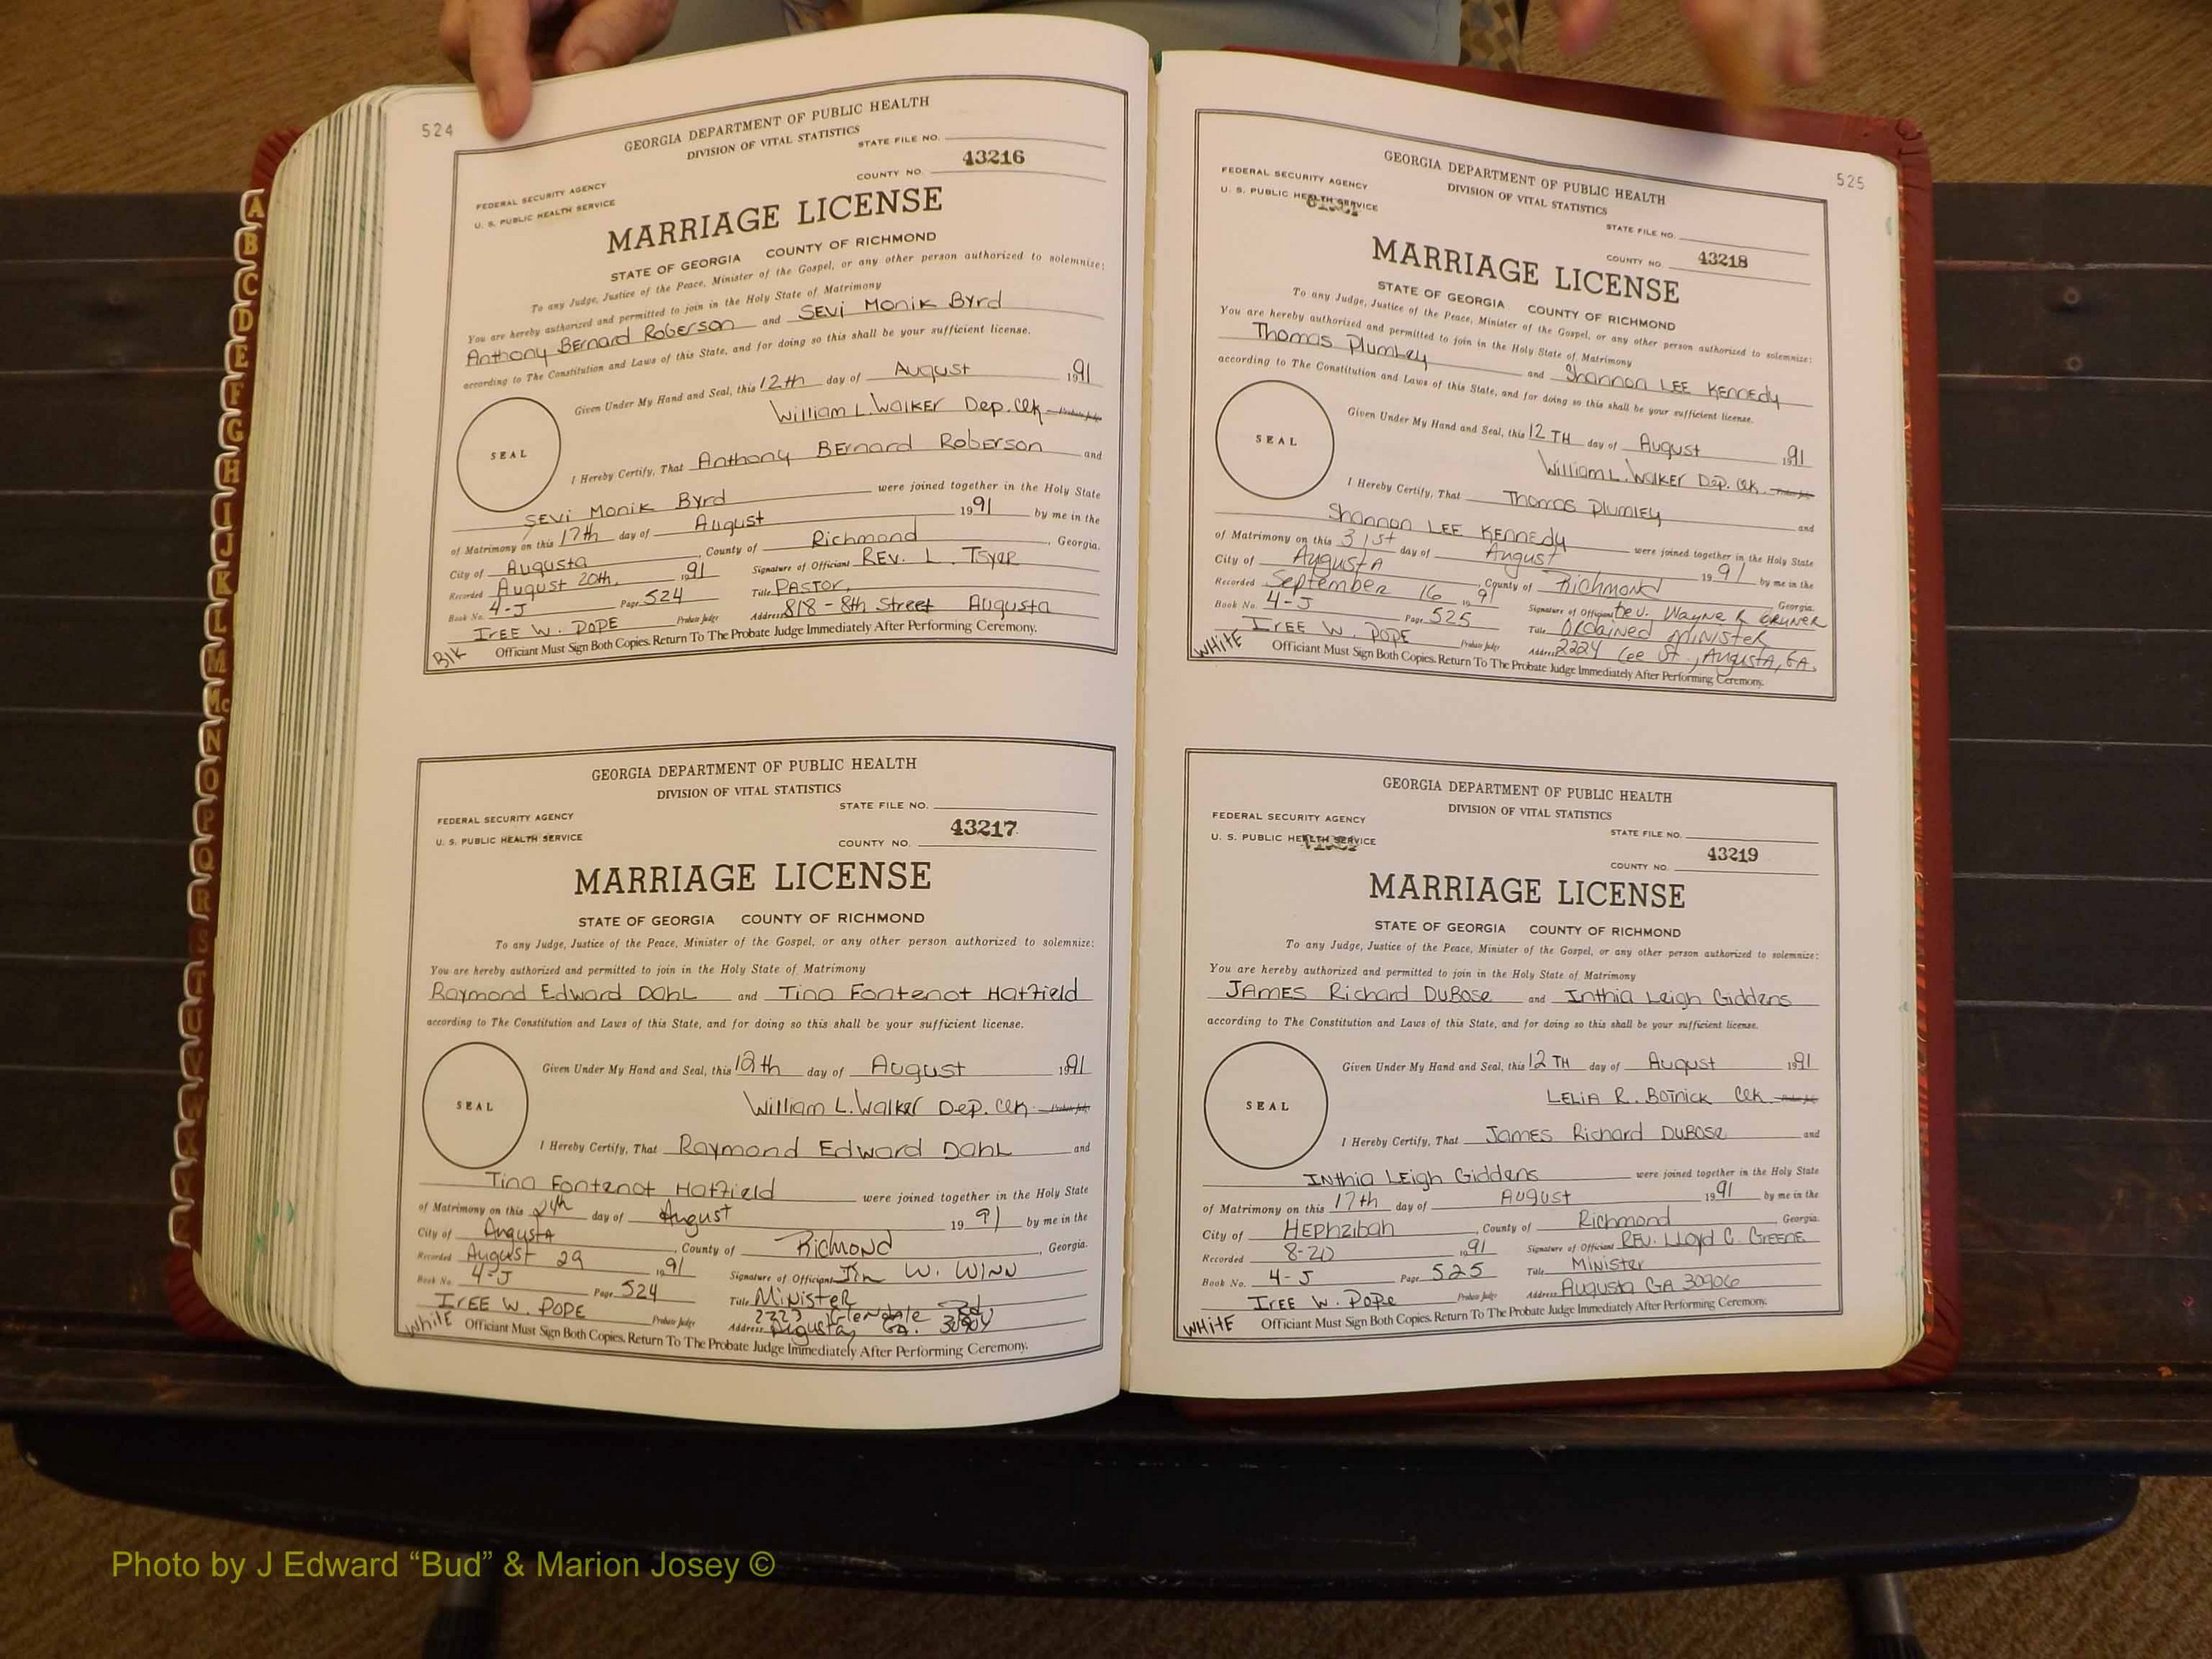 524
GEORGIA DEPARTMENT OF PUBLIC HEALTH
DIVISION OF VITAL STATISTICS
STATE FILE NO.
43216
COUNTY NO.
FEDERAL SECURITY AGENCY
U. S. PUBLIC HEALTH SERVICE
MARRIAGE LICENSE
STATE OF GEORGIA COUNTY OF RICHMOND
To any Judge, Justice of the Peace, Minister of the Gospel, or any other person authorized to solemnize:
You are hereby authorized and permitted to join in the Holy State of Matrimony
Anthony Bernard Roberson and Sevi Monik Byrd
according to The Constitution and Laws of this State, and for doing so this shall be your sufficient license.
Given Under My Hand and Seal, this 12th day of August 1991
William L. Walker Dep. Clk. Probate Judge
SEAL
I Hereby Certify, That Anthony Bernard Roberson and
Sevi Monik Byrd were joined together in the Holy State
of Matrimony on this 17th day of August 1991 by me in the
City of Augusta, County of Richmond, Georgia.
Recorded August 20th, 1991 Signature of Officiant Rev. L.
Book No. 4-J Page 524 Title Pastor,
Iree W. Pope Probate Judge Address 818 - 8th Street Augusta
Blk Officiant Must Sign Both Copies. Return To The Probate Judge Immediately After Performing Ceremony.
GEORGIA DEPARTMENT OF PUBLIC HEALTH
DIVISION OF VITAL STATISTICS
STATE FILE NO.
FEDERAL SECURITY AGENCY
43217
U. S. PUBLIC HEALTH SERVICE
COUNTY NO.
MARRIAGE LICENSE
STATE OF GEORGIA COUNTY OF RICHMOND
To any Judge, Justice of the Peace, Minister of the Gospel, or any other person authorized to solemnize:
You are hereby authorized and permitted to join in the Holy State of Matrimony
Raymond Edward Dahl and Tina Fontenot Hatfield
according to The Constitution and Laws of this State, and for doing so this shall be your sufficient license.
Given Under My Hand and Seal, this 12th day of August 1991
William L. Walker Dep. Clk Probate Judge
SEAL
I Hereby Certify, That Raymond Edward Dahl and
Tina Fontenot Hatfield were joined together in the Holy State
of Matrimony on this day of August 1991 by me in the
City of Augusta, County of Richmond, Georgia.
Recorded August 29 1991 Signature of Officiant W. Winn
Book No. 4-J Page 524 Title Minister
Iree W. Pope Probate Judge Address 2323 Glendale Rd
Augusta, GA.
White Officiant Must Sign Both Copies. Return To The Probate Judge Immediately After Performing Ceremony.
525
GEORGIA DEPARTMENT OF PUBLIC HEALTH
DIVISION OF VITAL STATISTICS
FEDERAL SECURITY AGENCY
U. S. PUBLIC HEALTH SERVICE
STATE FILE NO.
COUNTY NO. 43218
MARRIAGE LICENSE
STATE OF GEORGIA COUNTY OF RICHMOND
To any Judge, Justice of the Peace, Minister of the Gospel, or any other person authorized to solemnize:
You are hereby authorized and permitted to join in the Holy State of Matrimony
Thomas Plumley and Shannon Lee Kennedy
according to The Constitution and Laws of this State, and for doing so this shall be your sufficient license.
Given Under My Hand and Seal, this 12TH day of August 1991
William L. Walker Dep. Clk. Probate Judge
SEAL
I Hereby Certify, That Thomas Plumley and
Shannon Lee Kennedy were joined together in the Holy State
of Matrimony on this 31st day of August 1991 by me in the
City of Augusta, County of Richmond Georgia.
Recorded September 16 1991 Signature of Officiant Rev. Wayne R
Book No. 4-J Page 525 Title Ordained Minister
Iree W. Pope Probate Judge Address 2224 Lee St., Augusta, GA.
White Officiant Must Sign Both Copies. Return To The Probate Judge Immediately After Performing Ceremony.
GEORGIA DEPARTMENT OF PUBLIC HEALTH
DIVISION OF VITAL STATISTICS
FEDERAL SECURITY AGENCY
STATE FILE NO.
U. S. PUBLIC HEALTH SERVICE
43219
COUNTY NO.
MARRIAGE LICENSE
STATE OF GEORGIA COUNTY OF RICHMOND
To any Judge, Justice of the Peace, Minister of the Gospel, or any other person authorized to solemnize:
You are hereby authorized and permitted to join in the Holy State of Matrimony
James Richard DuBose and Inthia Leigh Giddens
according to The Constitution and Laws of this State, and for doing so this shall be your sufficient license.
Given Under My Hand and Seal, this 12TH day of August 1991
Lelia R. Botnick Clk. Probate Judge
SEAL
I Hereby Certify, That James Richard DuBose and
Inthia Leigh Giddens were joined together in the Holy State
of Matrimony on this 17th day of August 1991 by me in the
City of Hephzibah, County of Richmond Georgia.
Recorded 8-20 1991 Signature of Officiant Rev. Lloyd C. Greene
Book No. 4-J Page 525 Title Minister
Iree W. Pope Probate Judge Address Augusta GA 30906
White Officiant Must Sign Both Copies. Return To The Probate Judge Immediately After Performing Ceremony.
A
B
C
D
E
F
G
H
I
J
K
L
M
Mc
N
O
P
Q
R
S
T
Photo by J Edward “Bud” & Marion Josey ©